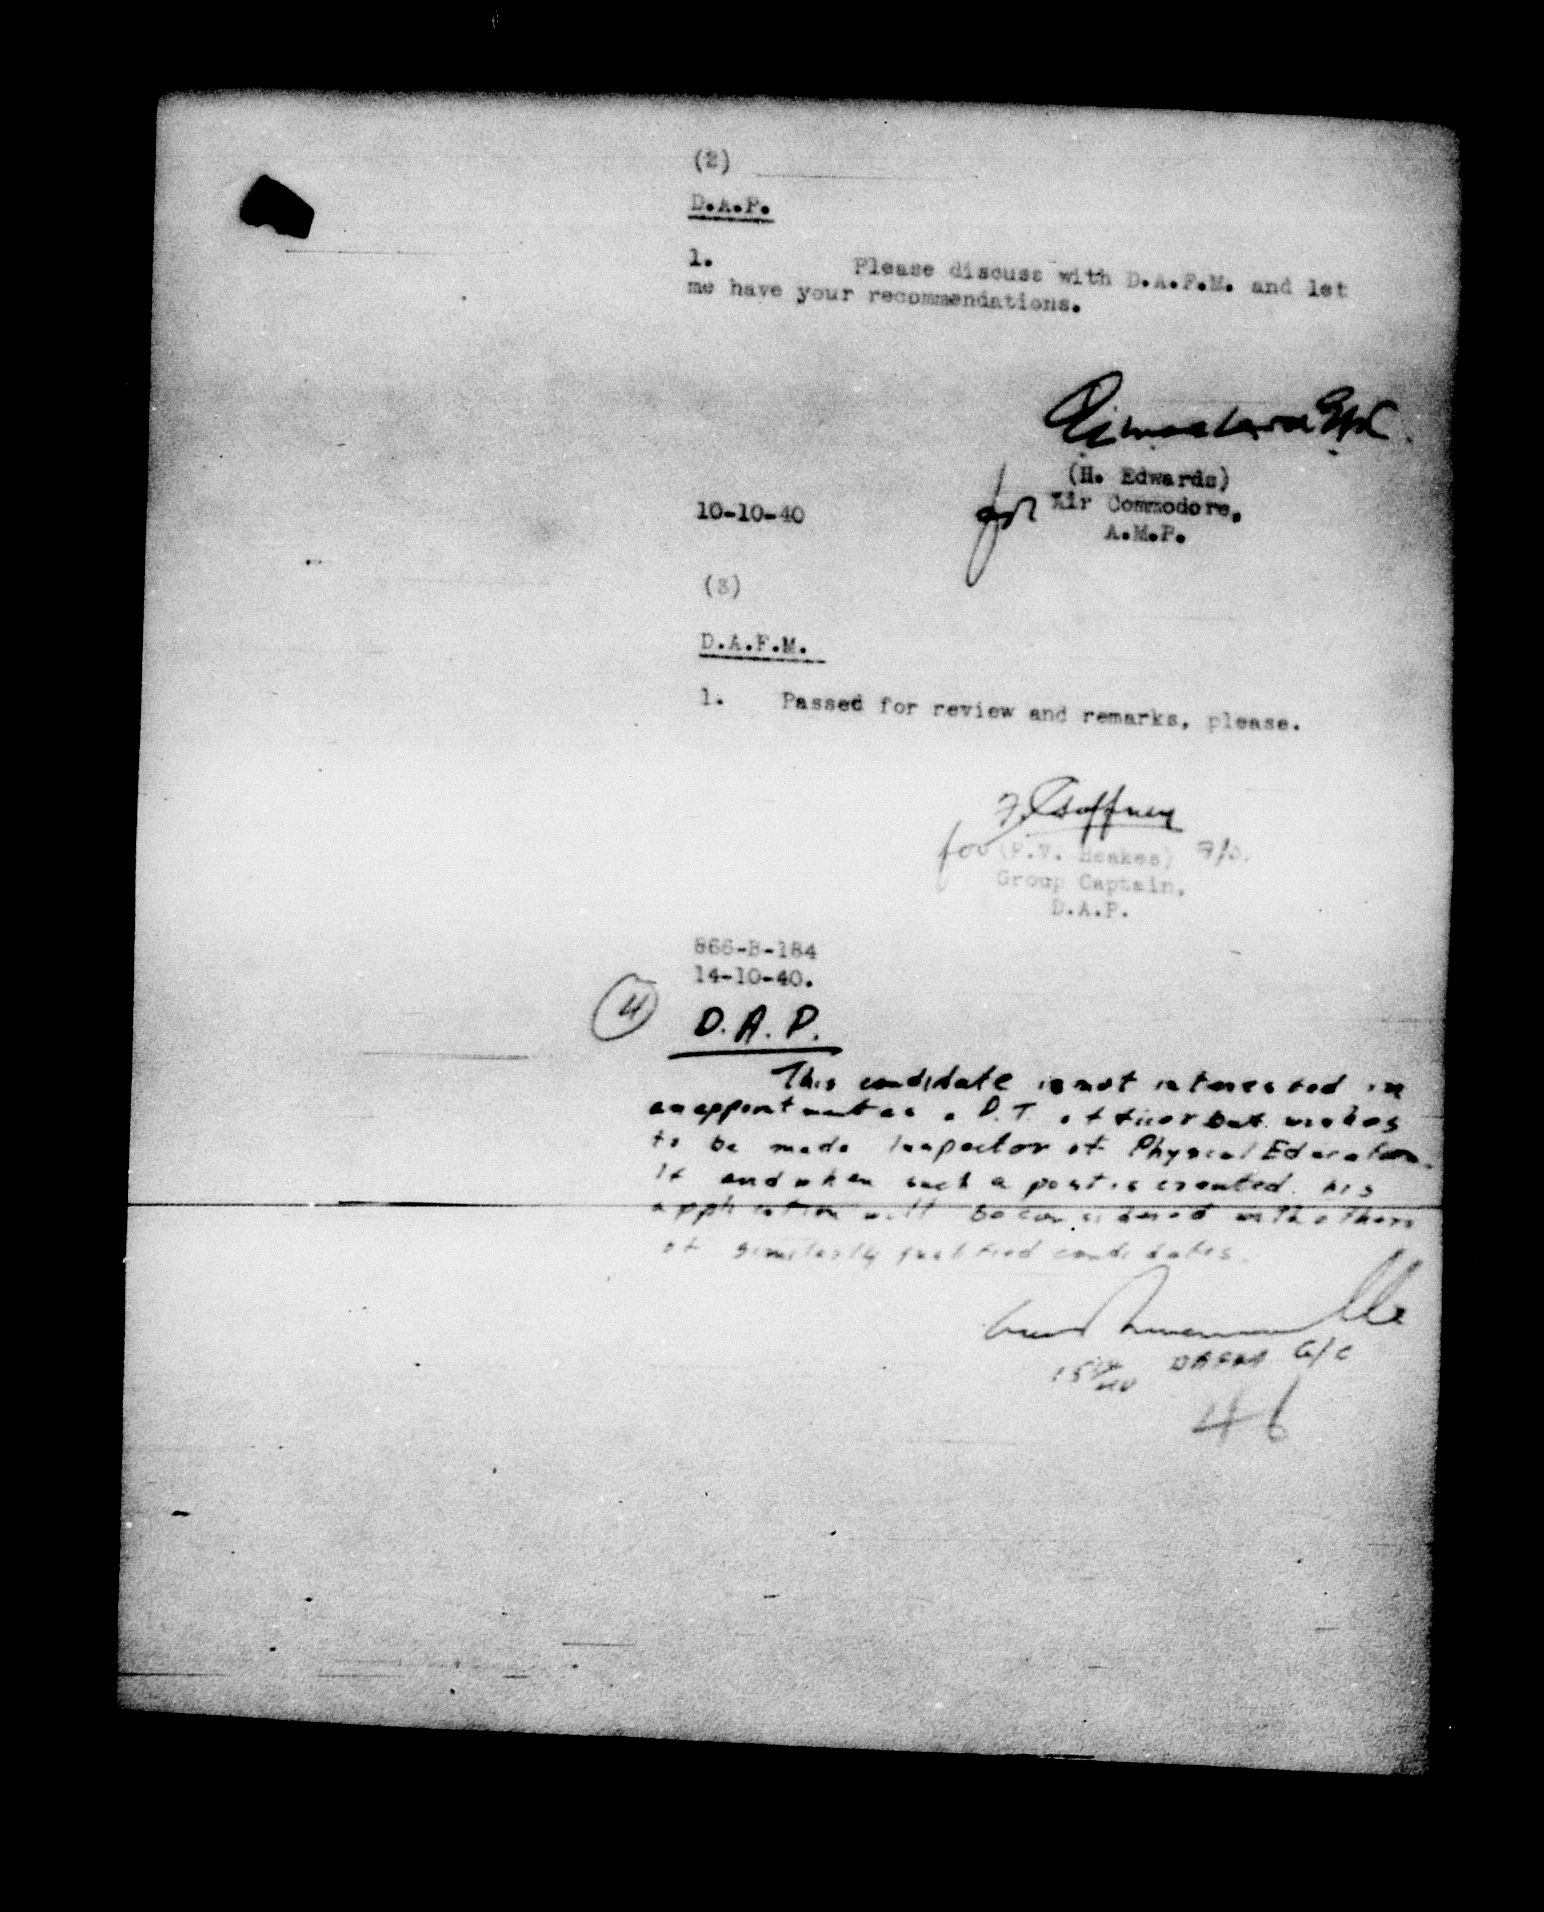 (2)
D.A.P.
1. Please discuss with D.A.F.M. and let
me have your recommendations.
(H. Edwards)
10-10-40 for Air Commodore,
A.M.P.
(3)
D.A.F.M.
1. Passed for review and remarks, please.
F. Gaffney
for (F.V. Heakes) F/O.
Group Captain,
D.A.P.
866-B-184
14-10-40.
4 D.A.P.
This candidate is not interested in
an appointment as a P.T. officer but wishes
to be made Inspector of Physical Education.
If and when such a post is created his
application will be considered with others
of similarly qualified candidates.
DAFM G/C
46